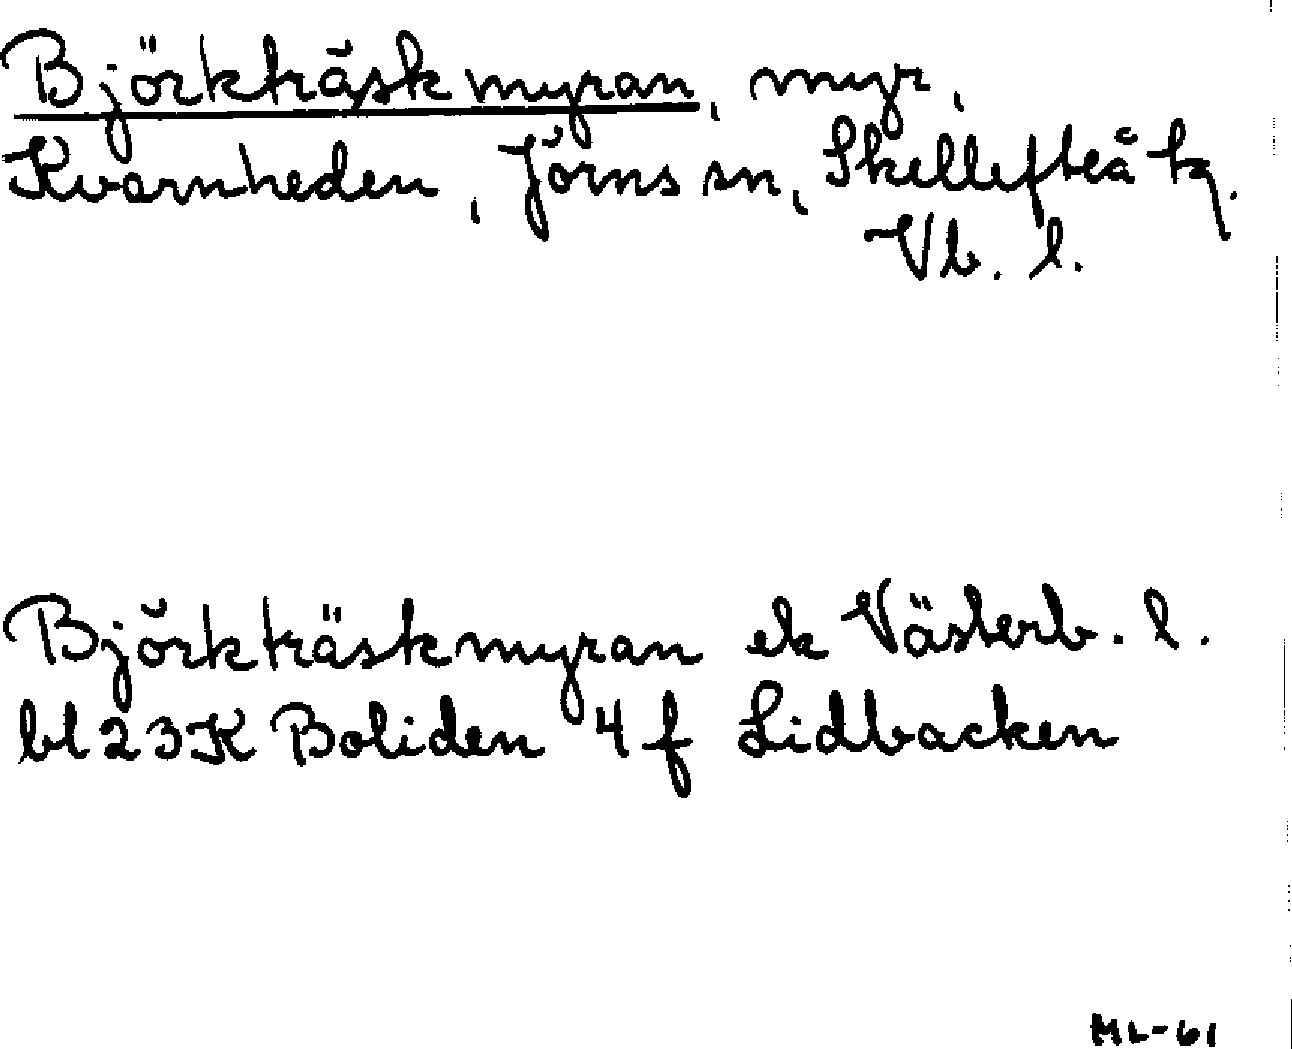 Björkträskmyran, myr,
Kvarnheden, Jörns sn, Skellefteå tg.
Vb. l.
Björkträskmyran ek Västerb. l.
bl 23K Boliden 4f Lidbacken
ML-61